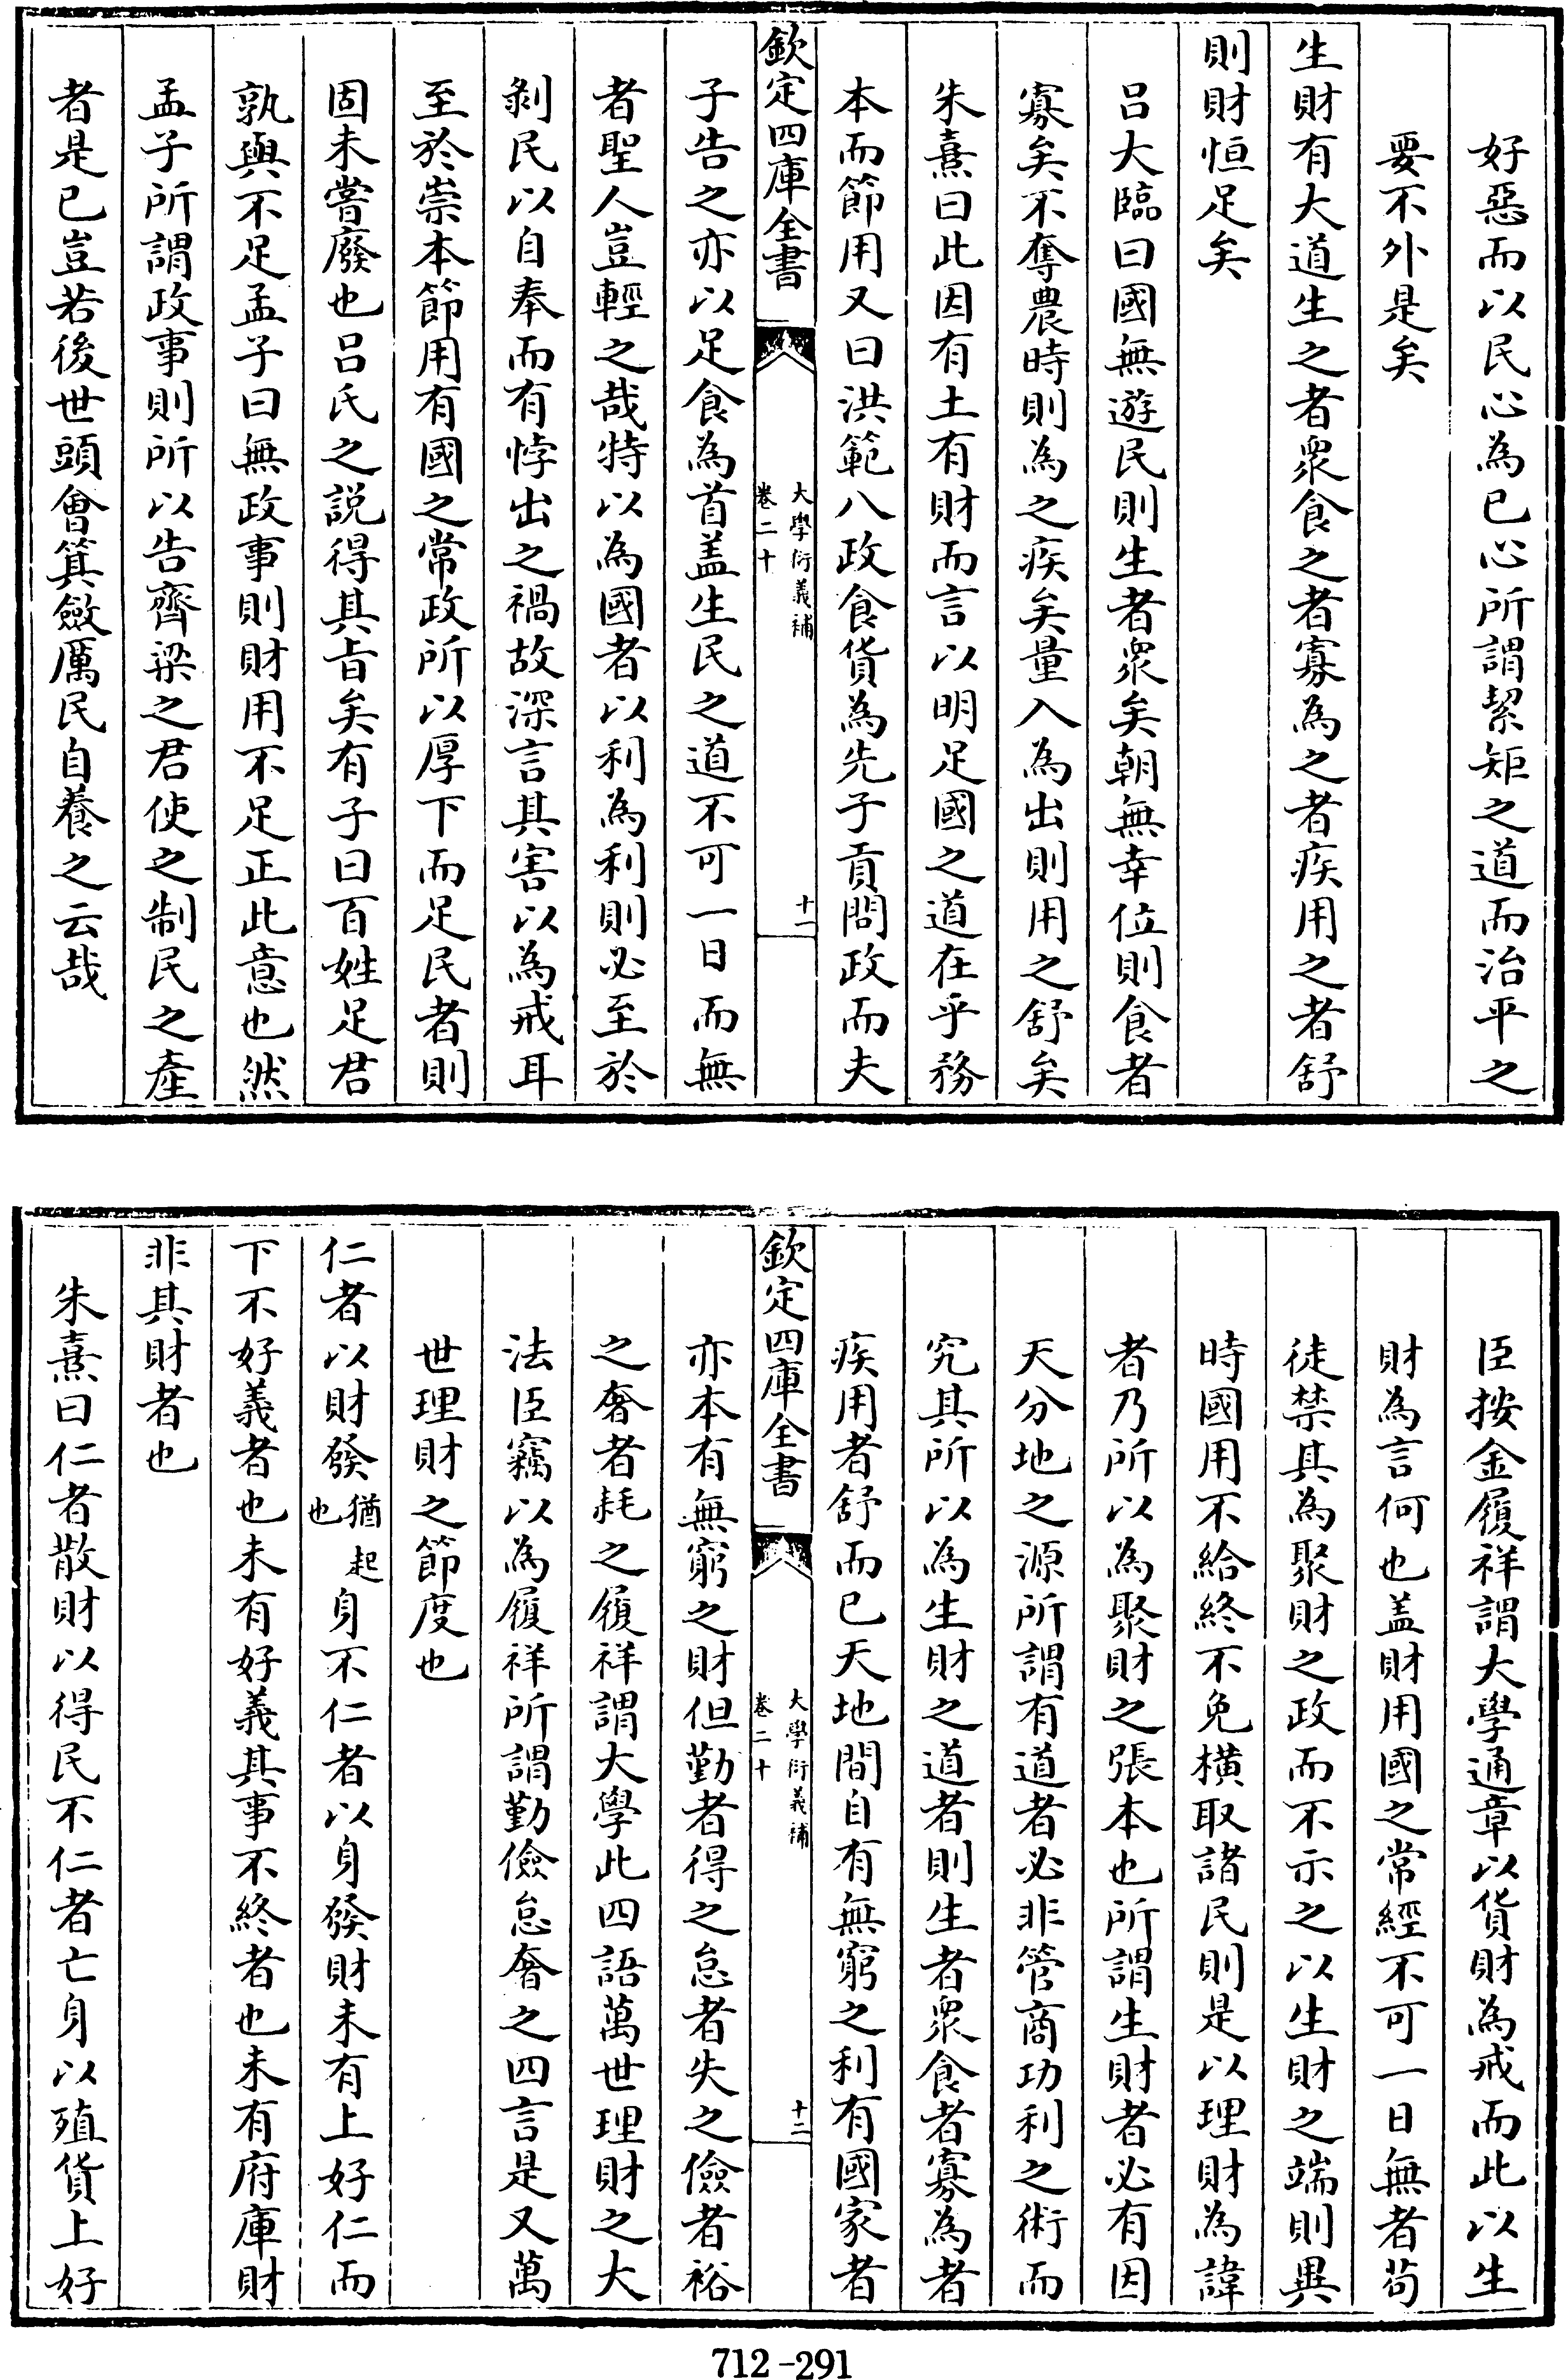 好惡而以民心為已心所謂絜矩之道而治平之
要不外是矣
生財有大道生之者衆食之者寡為之者疾用之者舒
則財恒足矣
呂大臨曰國無遊民則生者衆矣朝無幸位則食者
寡矣不奪農時則為之疾矣量入為出則用之舒矣
朱熹曰此因有土有財而言以明足國之道在乎務
本而節用又曰洪範八政食貨為先子貢問政而夫
欽定四庫全書
大學衍義補
卷二十
十一
子告之亦以足食為首盖生民之道不可一日而無
者聖人豈輕之哉特以為國者以利為利則必至於
剝民以自奉而有悖出之禍故深言其害以為戒耳
至於崇本節用有國之常政所以厚下而足民者則
固未嘗廢也呂氏之説得其旨矣有子曰百姓足君
孰與不足孟子曰無政事則財用不足正此意也然
孟子所謂政事則所以告齊梁之君使之制民之產
者是已豈若後世頭會箕斂厲民自養之云哉
臣按金履祥謂大學通章以貨財為戒而此以生
財為言何也盖財用國之常經不可一日無者苟
徒禁其為聚財之政而不示之以生財之端則異
時國用不給終不免橫取諸民則是以理財為諱
者乃所以為聚財之張本也所謂生財者必有因
天分地之源所謂有道者必非管商功利之術而
究其所以為生財之道者則生者衆食者寡為者
疾用者舒而已天地間自有無窮之利有國家者
欽定四庫全書
大學衍義補
卷二十
十二
亦本有無窮之財但勤者得之怠者失之儉者裕
之奢者耗之履祥謂大學此四語萬世理財之大
法臣竊以為履祥所謂勤儉怠奢之四言是又萬
世理財之節度也
仁者以財發猶起也身不仁者以身發財未有上好仁而
下不好義者也未有好義其事不終者也未有府庫財
非其財者也
朱熹曰仁者散財以得民不仁者亡身以殖貨上好
712-291